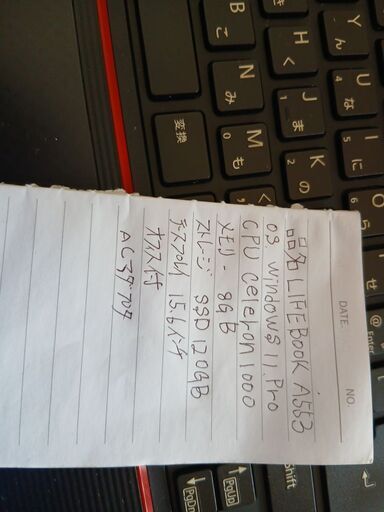 DATE.
NO.
品名 LIFEBOOK A553
OS Windows 11 Pro
CPU Celeron 1000
メモリー 8GB
ストレージ SSD 120GB
ディスプレイ 15.6インチ
オフィス付
ACアダプタ
B
こ
H
く
Y
ん
N
み
J
ま
U
な
変換
M
も
K
の
I
に
O
ら
Shift
PgUp
PgDn